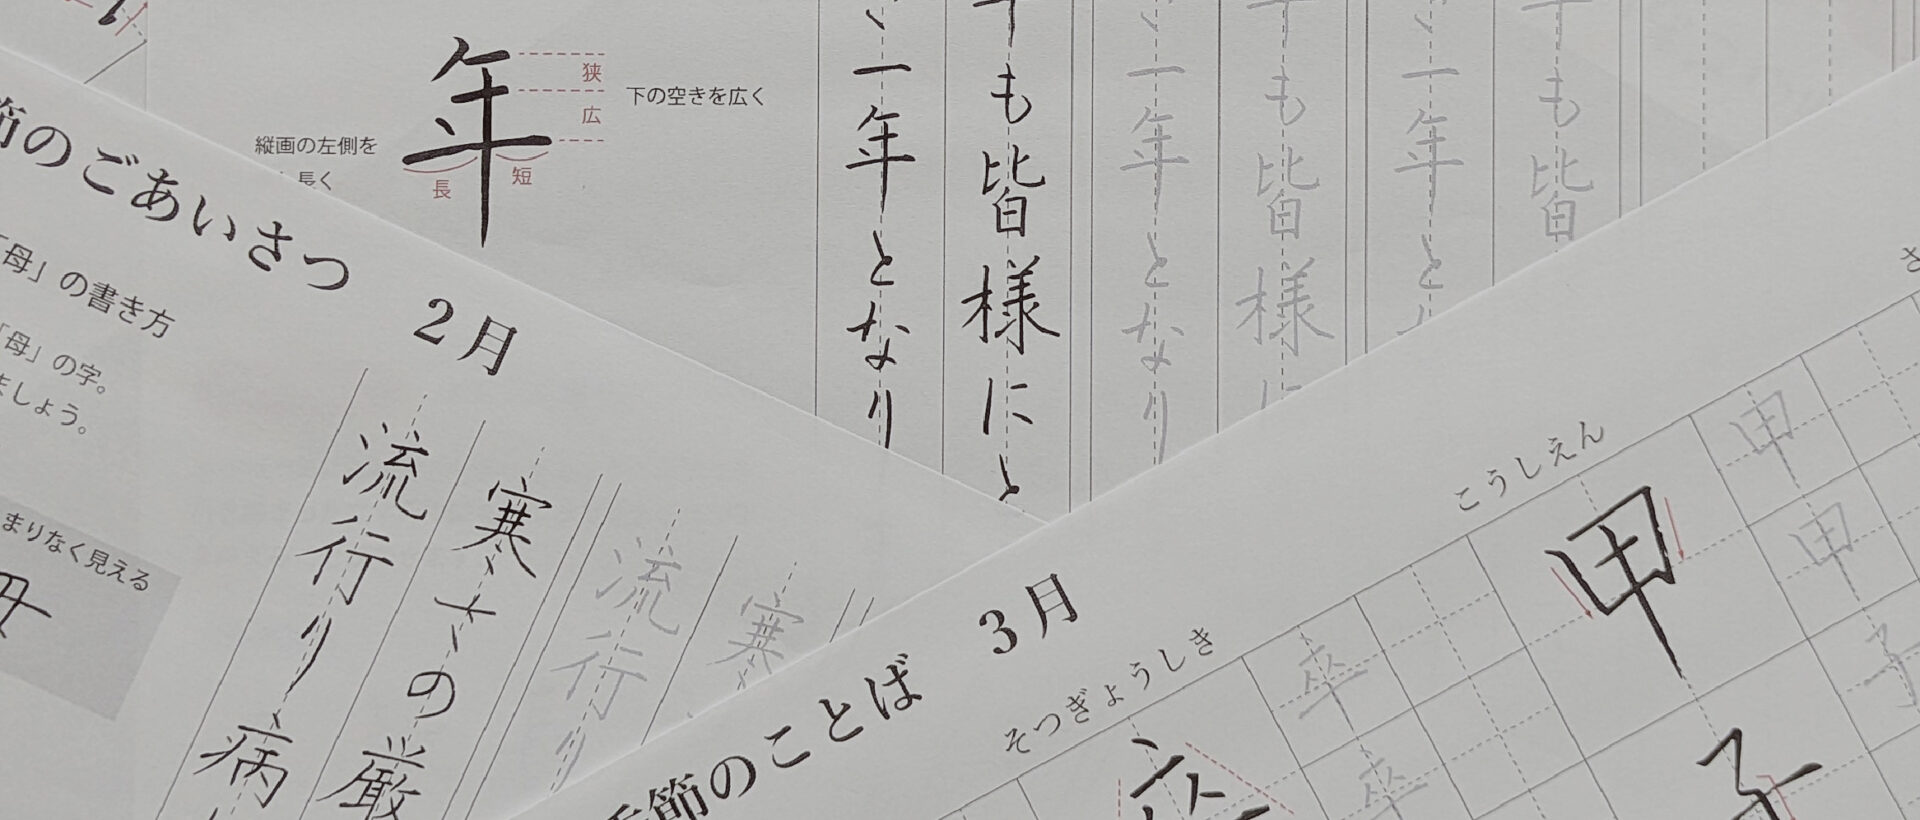 年
狭
広
下の空きを広く
縦画の左側を
長く
長
短
も皆様に
一年となり
も皆様に
一年となり
も皆
一年と
節のごあいさつ 2月
「母」の書き方
「母」の字。
ましょう。
まりなく見える
寒さの厳
流行り病
寒
流行り
季節のことば 3月
こうしえん
甲子
甲
甲
子
そつぎょうしき
卒
卒
卒